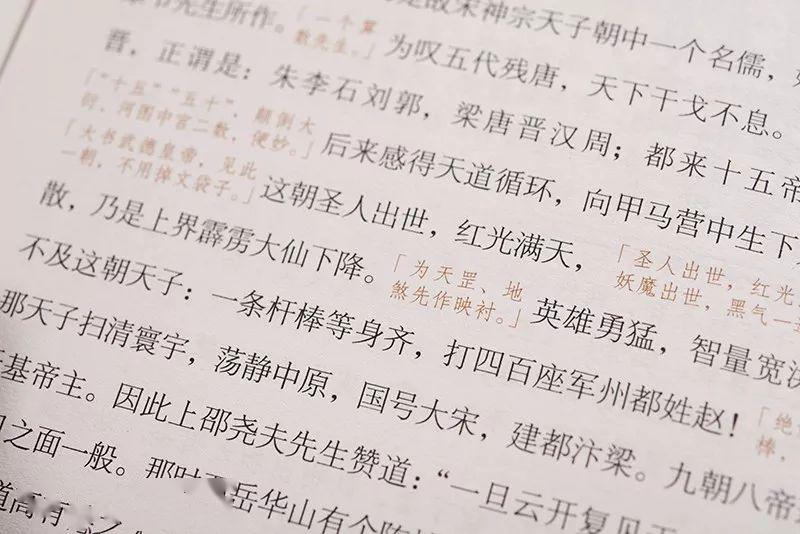 是故宋神宗天子朝中一个名儒，
先生所作。「一个算数先生。」为叹五代残唐，天下干戈不息。
晋，正谓是：朱李石刘郭，梁唐晋汉周；都来十五帝
「“十五”“五十”，颠倒大衍，河图中宫二数，便妙。」后来感得天道循环，向甲马营中生下
「大书武德皇帝，见此一朝，不用掉文袋子。」这朝圣人出世，红光满天，「圣人出世，红光妖魔出世，黑气一
散，乃是上界霹雳大仙下降。「为天罡、地煞先作映衬。」英雄勇猛，智量宽洪
不及这朝天子：一条杆棒等身齐，打四百座军州都姓赵！「绝棒，
那天子扫清寰宇，荡静中原，国号大宋，建都汴梁。九朝八帝
基帝主。因此上邵尧夫先生赞道：“一旦云开复见天
日之面一般。那时 岳华山有个陈
道高有